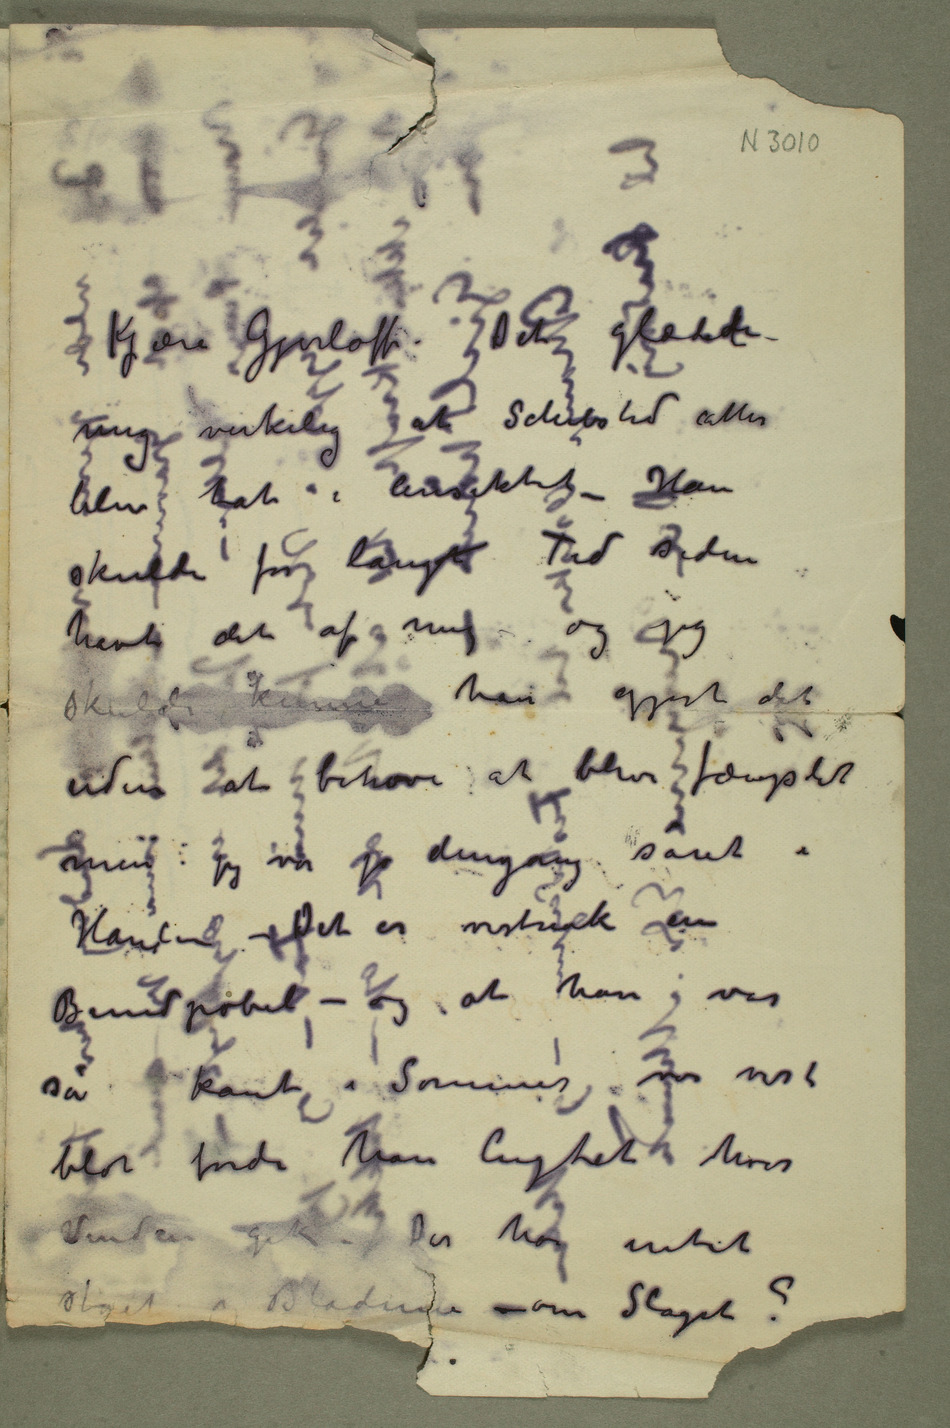 N 3010
Kjære Gjerløff. Det glæded-
mig virkelig at Schibsted atter
blev tat i ansiktet – Han
skulde for langt Tid siden
havt det af mig og jeg
skulde kunne han gjort det
uden at behøve at blive fængslet
men: jeg var jo dengang såret i
Hånden – Det er vistnok en
Bundpøbel – og at han var
så kant i Sommer var vist
blot fordi han lugtet hvor
Vinden gik. Der har intet
stået i Bladene – om Slaget?